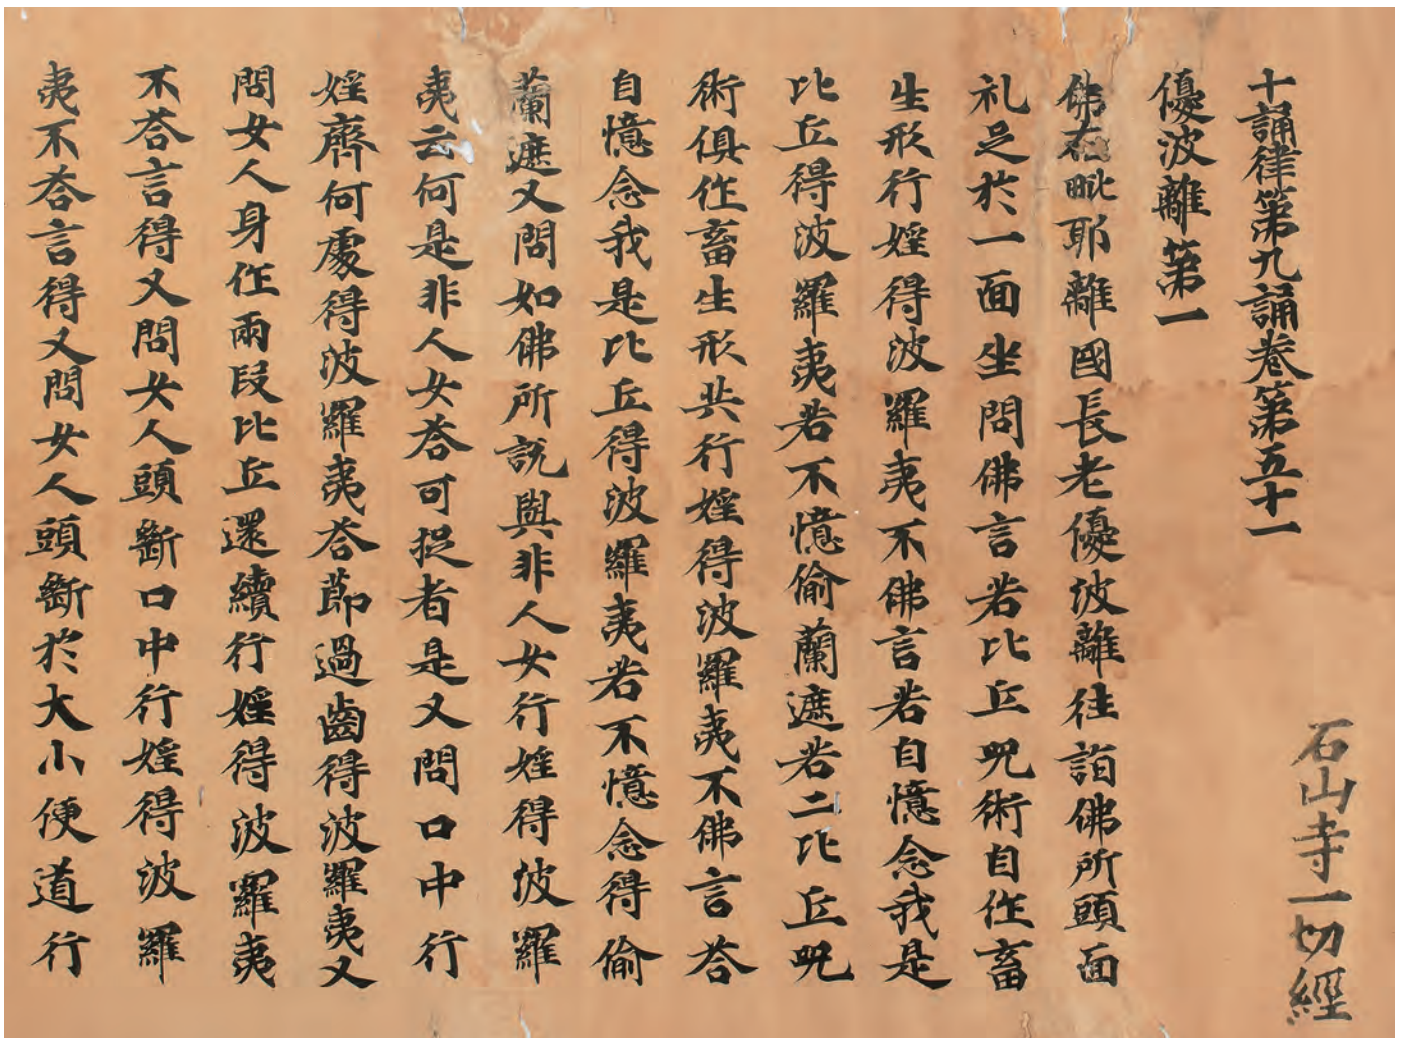 石山寺一切經
十誦律第九誦卷第五十一
優波離第一
佛在毗耶離國長老優波離往詣佛所頭面
礼足於一面坐問佛言若比丘呪術自作畜
生形行婬得波羅夷不佛言若自憶念我是
比丘得波羅夷若不憶偷蘭遮若二比丘呪
術俱作畜生形共行婬得波羅夷不佛言荅
自憶念我是比丘得波羅夷若不憶念得偷
蘭遮又問如佛所說與非人女行婬得波羅
夷云何是非人女荅可捉者是又問口中行
婬齊何處得波羅夷荅莭過齒得波羅夷又
問女人身作兩段比丘還續行婬得波羅夷
不荅言得又問女人頭斷口中行婬得波羅
夷不荅言得又問女人頭斷於大小便道行